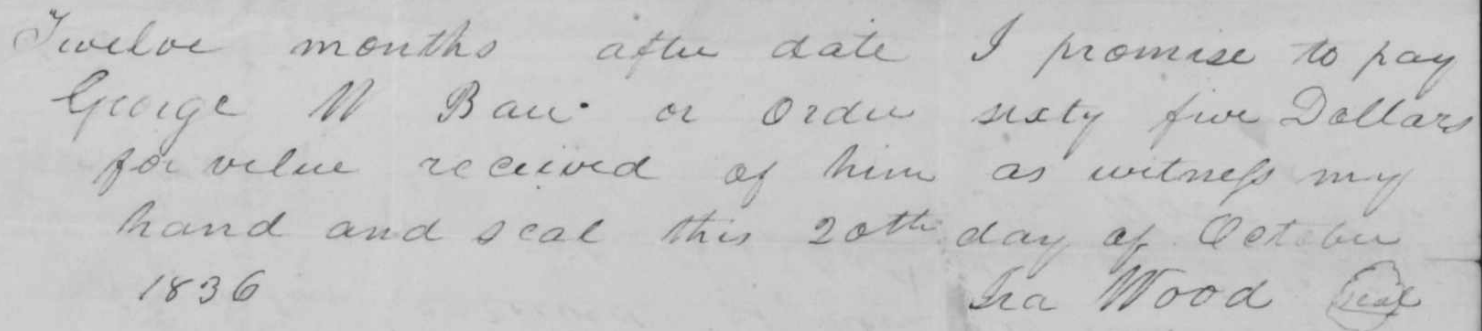 Twelve months after date I promise to pay
George W Barr or order sixty five Dollars
for velue received of him as witness my
hand and seal this 20th day of October
1836 Ira Wood seal